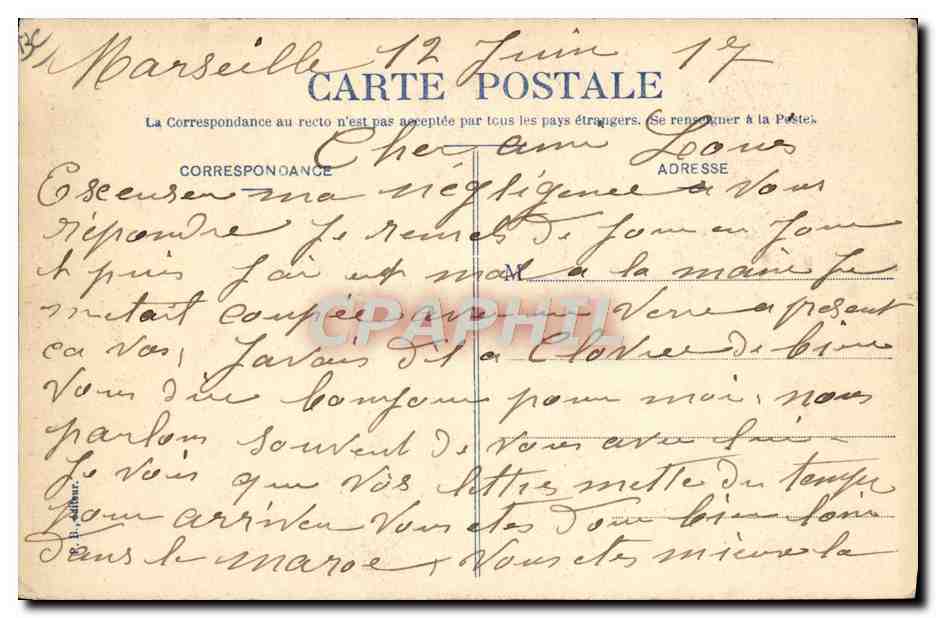 Marseille 12 Juin 17
CARTE POSTALE
La Correspondance au recto n'est pas acceptée par tous les pays étrangers. (Se renseigner à la Poste).
Cher ami Loues
CORRESPONDANCE
ADRESSE
Escuser ma négligence a vous
répondre Je remes de Jour en Jour
et puis Jai eu mal a la main Je
M
metait coupée avec un verre a present
ca vas, Javais dit a Clovee de bien
vous dire bonjour pour moi, nous
parlons souvent de vous avec lui
Je vois que vos lettres mette du temps
pour arriver vous etes donc bien loin
dans le maroc, vous etes mieux la
B., éditeur.
CPAPHIL